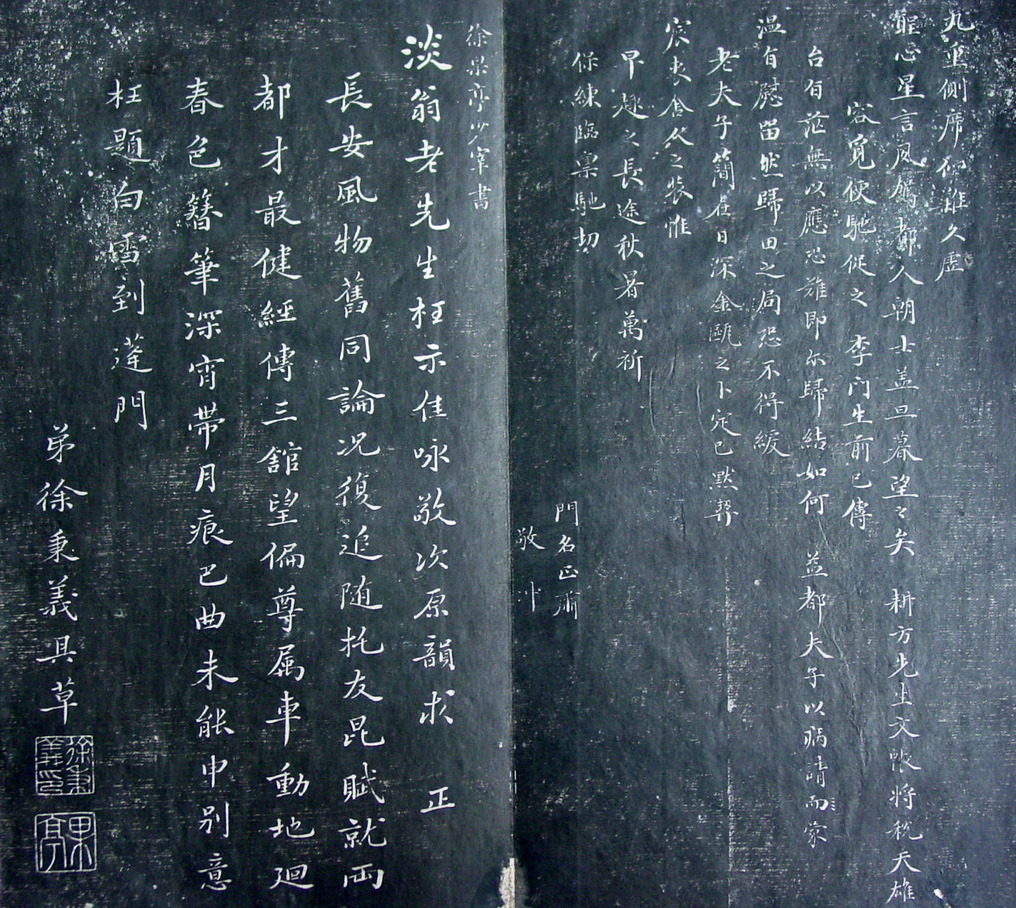 九重側席仰雖久虛
聖心星言夙駕都人朝士盖旦暮望々矣 耕方先生文帙將税天雄
容覓便馳從之 李門生前已傳
台有茫無以應恐雖即尔歸結如何 益都夫子以病請而家
温有慰留然歸田之局恐不得緩
老夫子簡在日深金甌之卜定已默契
宸衷舍从之裝惟
早趣之長途秋暑萬祈
保練臨稟馳切
門名正肅
敬冲
徐果亭少宰書
淡翁老先生枉示佳咏敬次原韻求 正
長安風物舊同論况復追随托友昆賦就兩
都才最健經傳三舘望偏尊属車動地廻
春色簪筆深宵帶月痕巴曲未能申别意
枉題白雪到蓬門
弟徐秉義具草
徐秉義印
果亭